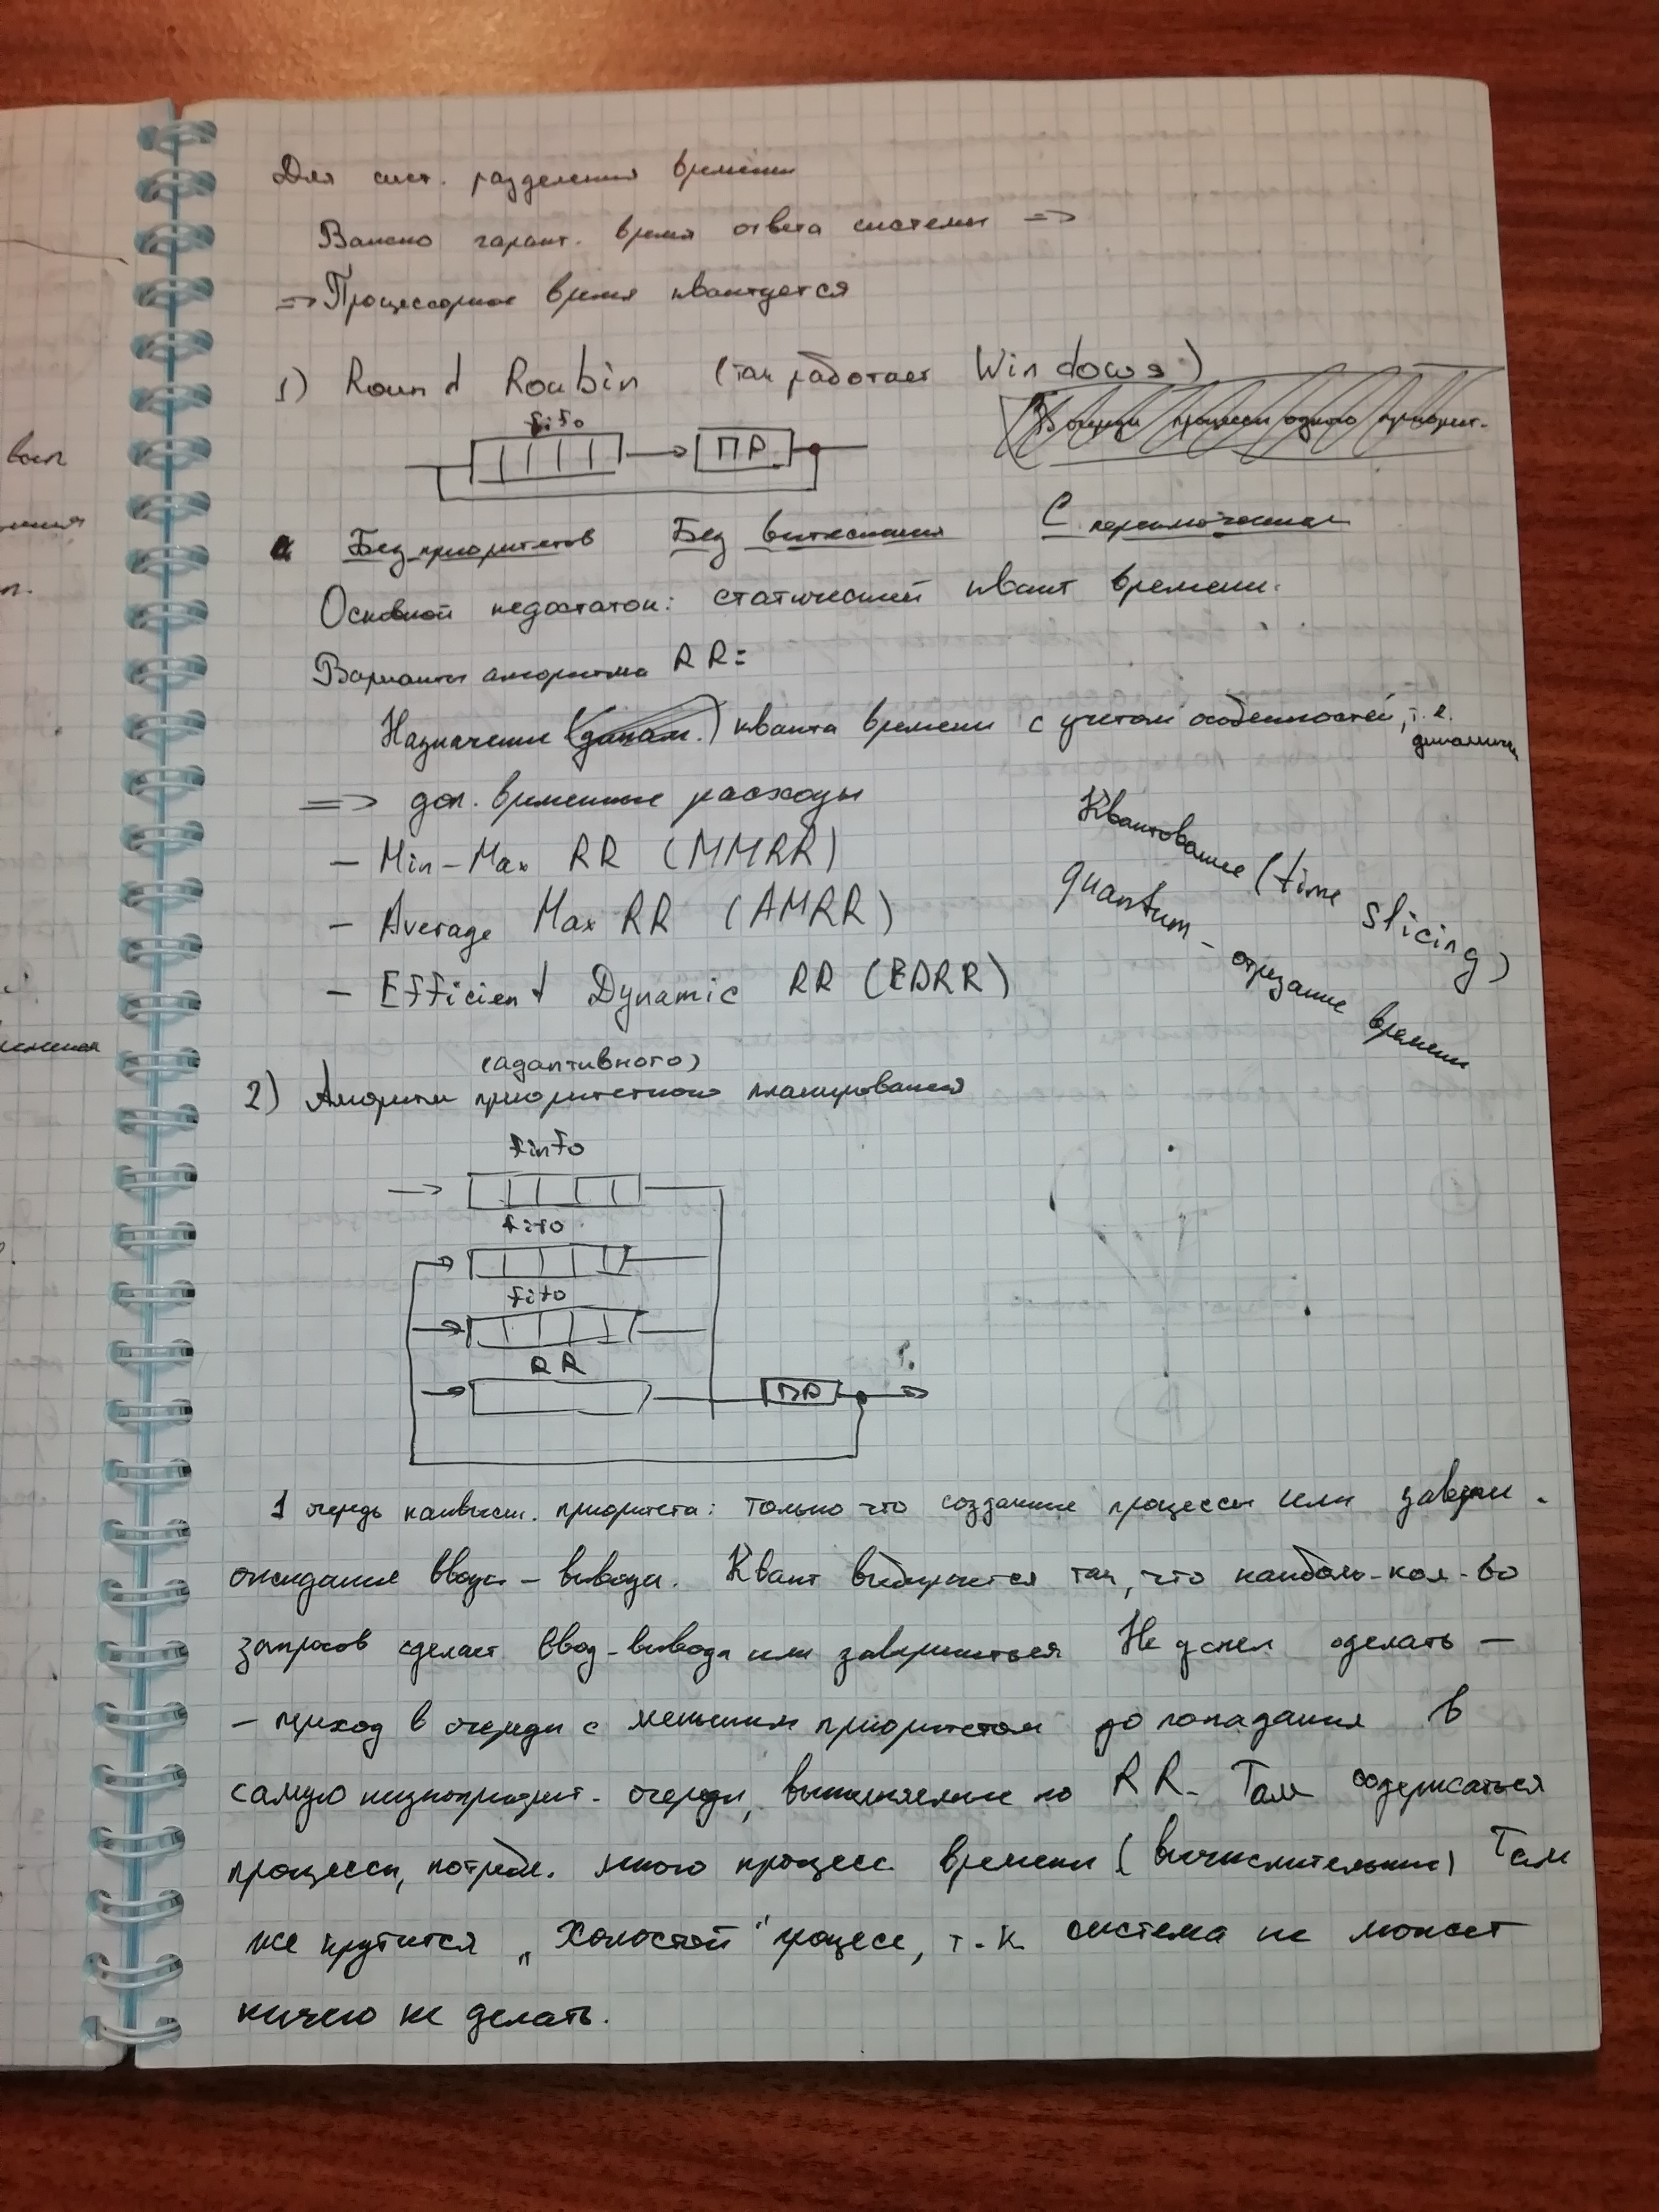 Для сист. разделения времени
Важно гарант. время ответа системы =>
=> Процессорное время квантуется
1) Round Roubin (так работает Windows)
fifo
ПР
Без приоритетов Без вытеснения С переключением
Основной недостаток: статический квант времени.
Варианты алгоритма RR:
Назначение (динам.) кванта времени с учетом особенностей, т.е. динамич
=> доп. временные расходы
- Min-Max RR (MMRR)
- Average Max RR (AMRR)
- Efficient Dynamic RR (EDRR)
Квантование (time slicing)
quantum - отрезание времени
(адаптивного)
2) Алгоритм приоритетного планирования
finfo
fifo
fifo
RR
ПР
1 очередь наивысш. приоритета: только что созданные процессы или заверш.
ожидание ввода-вывода. Квант выбирается так, что наиболь-кол-во
запросов сделает ввод-вывода или завершиться Не успел сделать -
- приход в очереди с меньшим приоритетом до попадания в
самую низкоприорит. очередь, выполняемые по RR. Там содержаться
процессы, потребл. много процесс. времени (вычислительные) Там
же крутится „Холостой" процесс, т.к система не может
ничего не делать.